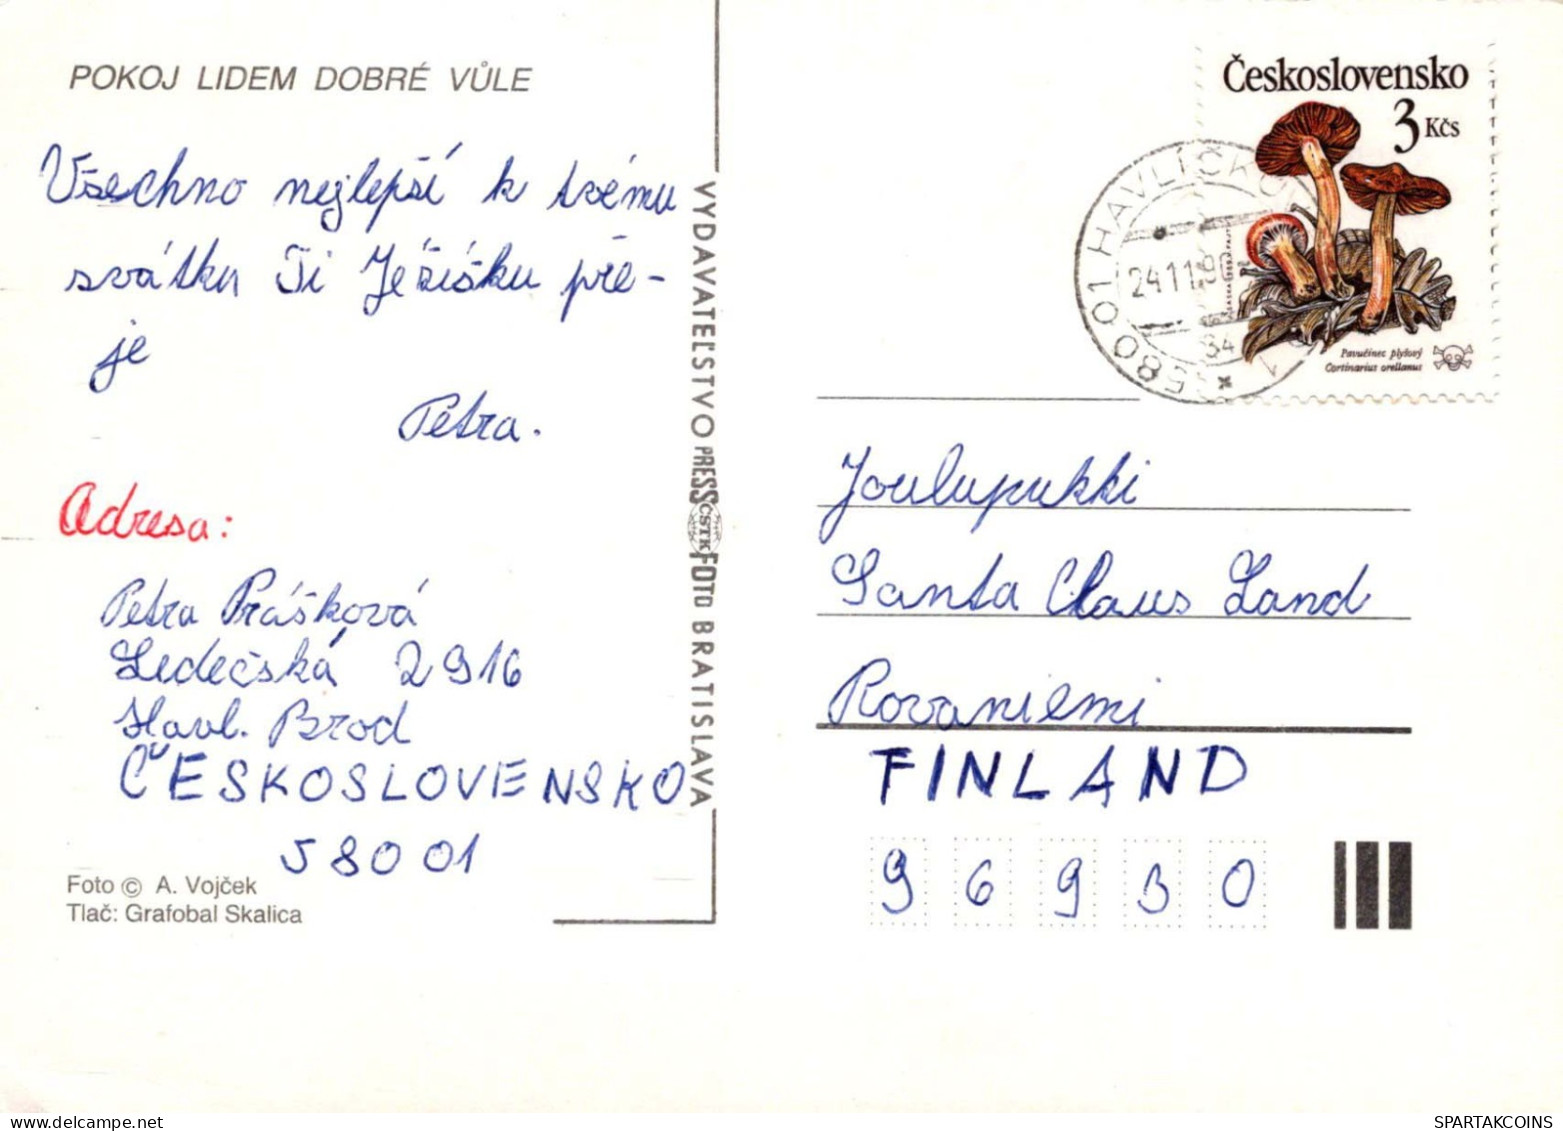 POKOJ LIDEM DOBRÉ VŮLE
Všechno nejlepší k tvému
svátku Ti Ježíšku pře-
je
Petra.
Adresa:
Petra Prášková
Ledečská 2916
Havl. Brod
ČESKOSLOVENSKO
580 01
Foto © A. Vojček
Tlač: Grafobal Skalica
VYDAVATEĽSTVO PRESSFOTO BRATISLAVA
ČSTK
Československo
3 Kčs
Pavučinec plyšový
Cortinarius orellanus
580 01 HAVLÍČK
24.11.90
34
1
Joulupukki
Santa Claus Land
Rovaniemi
FINLAND
96930
SPARTAKCOINS